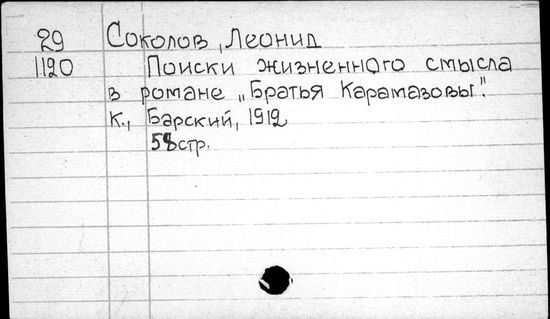 29 Соколов, Леонид
1120 Поиски жизненного смысла
в романе „Братья Карамазовы".
К., Барский, 1912
58 стр.